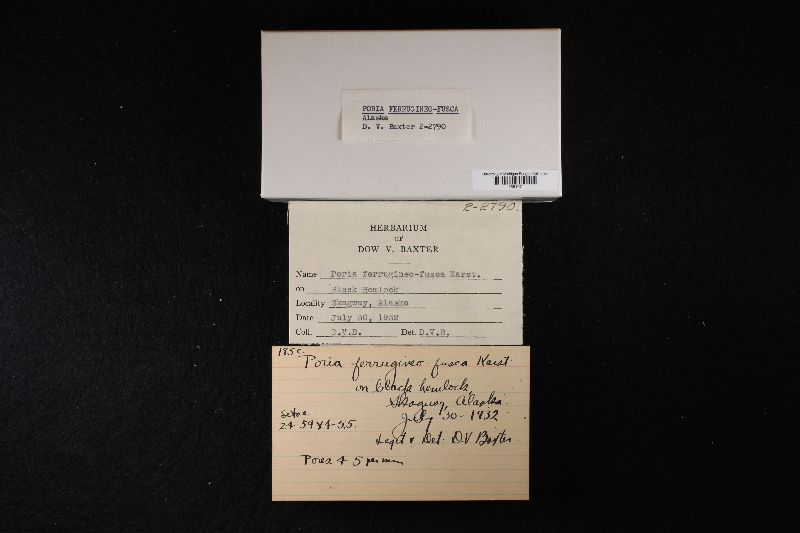 PORIA FERRUGINEO-FUSCA
Alaska
D. V. Baxter 2-2790
2-2790.
HERBARIUM
OF
DOW V. BAXTER
Name Poria ferrugineo-fusca Karst.
on Black Hemlock
Locality Skagway, Alaska
Date July 30, 1932
Coll. D.V.B. Det. D.V.B.
Poria ferrugineo-fusca Karst
on black hemlock
Skagway, Alaska
July 30-1932
Setae
24-59 x 4-5.5.
Legit & Det. D.V. Baxter
Pores 4 5 per mm